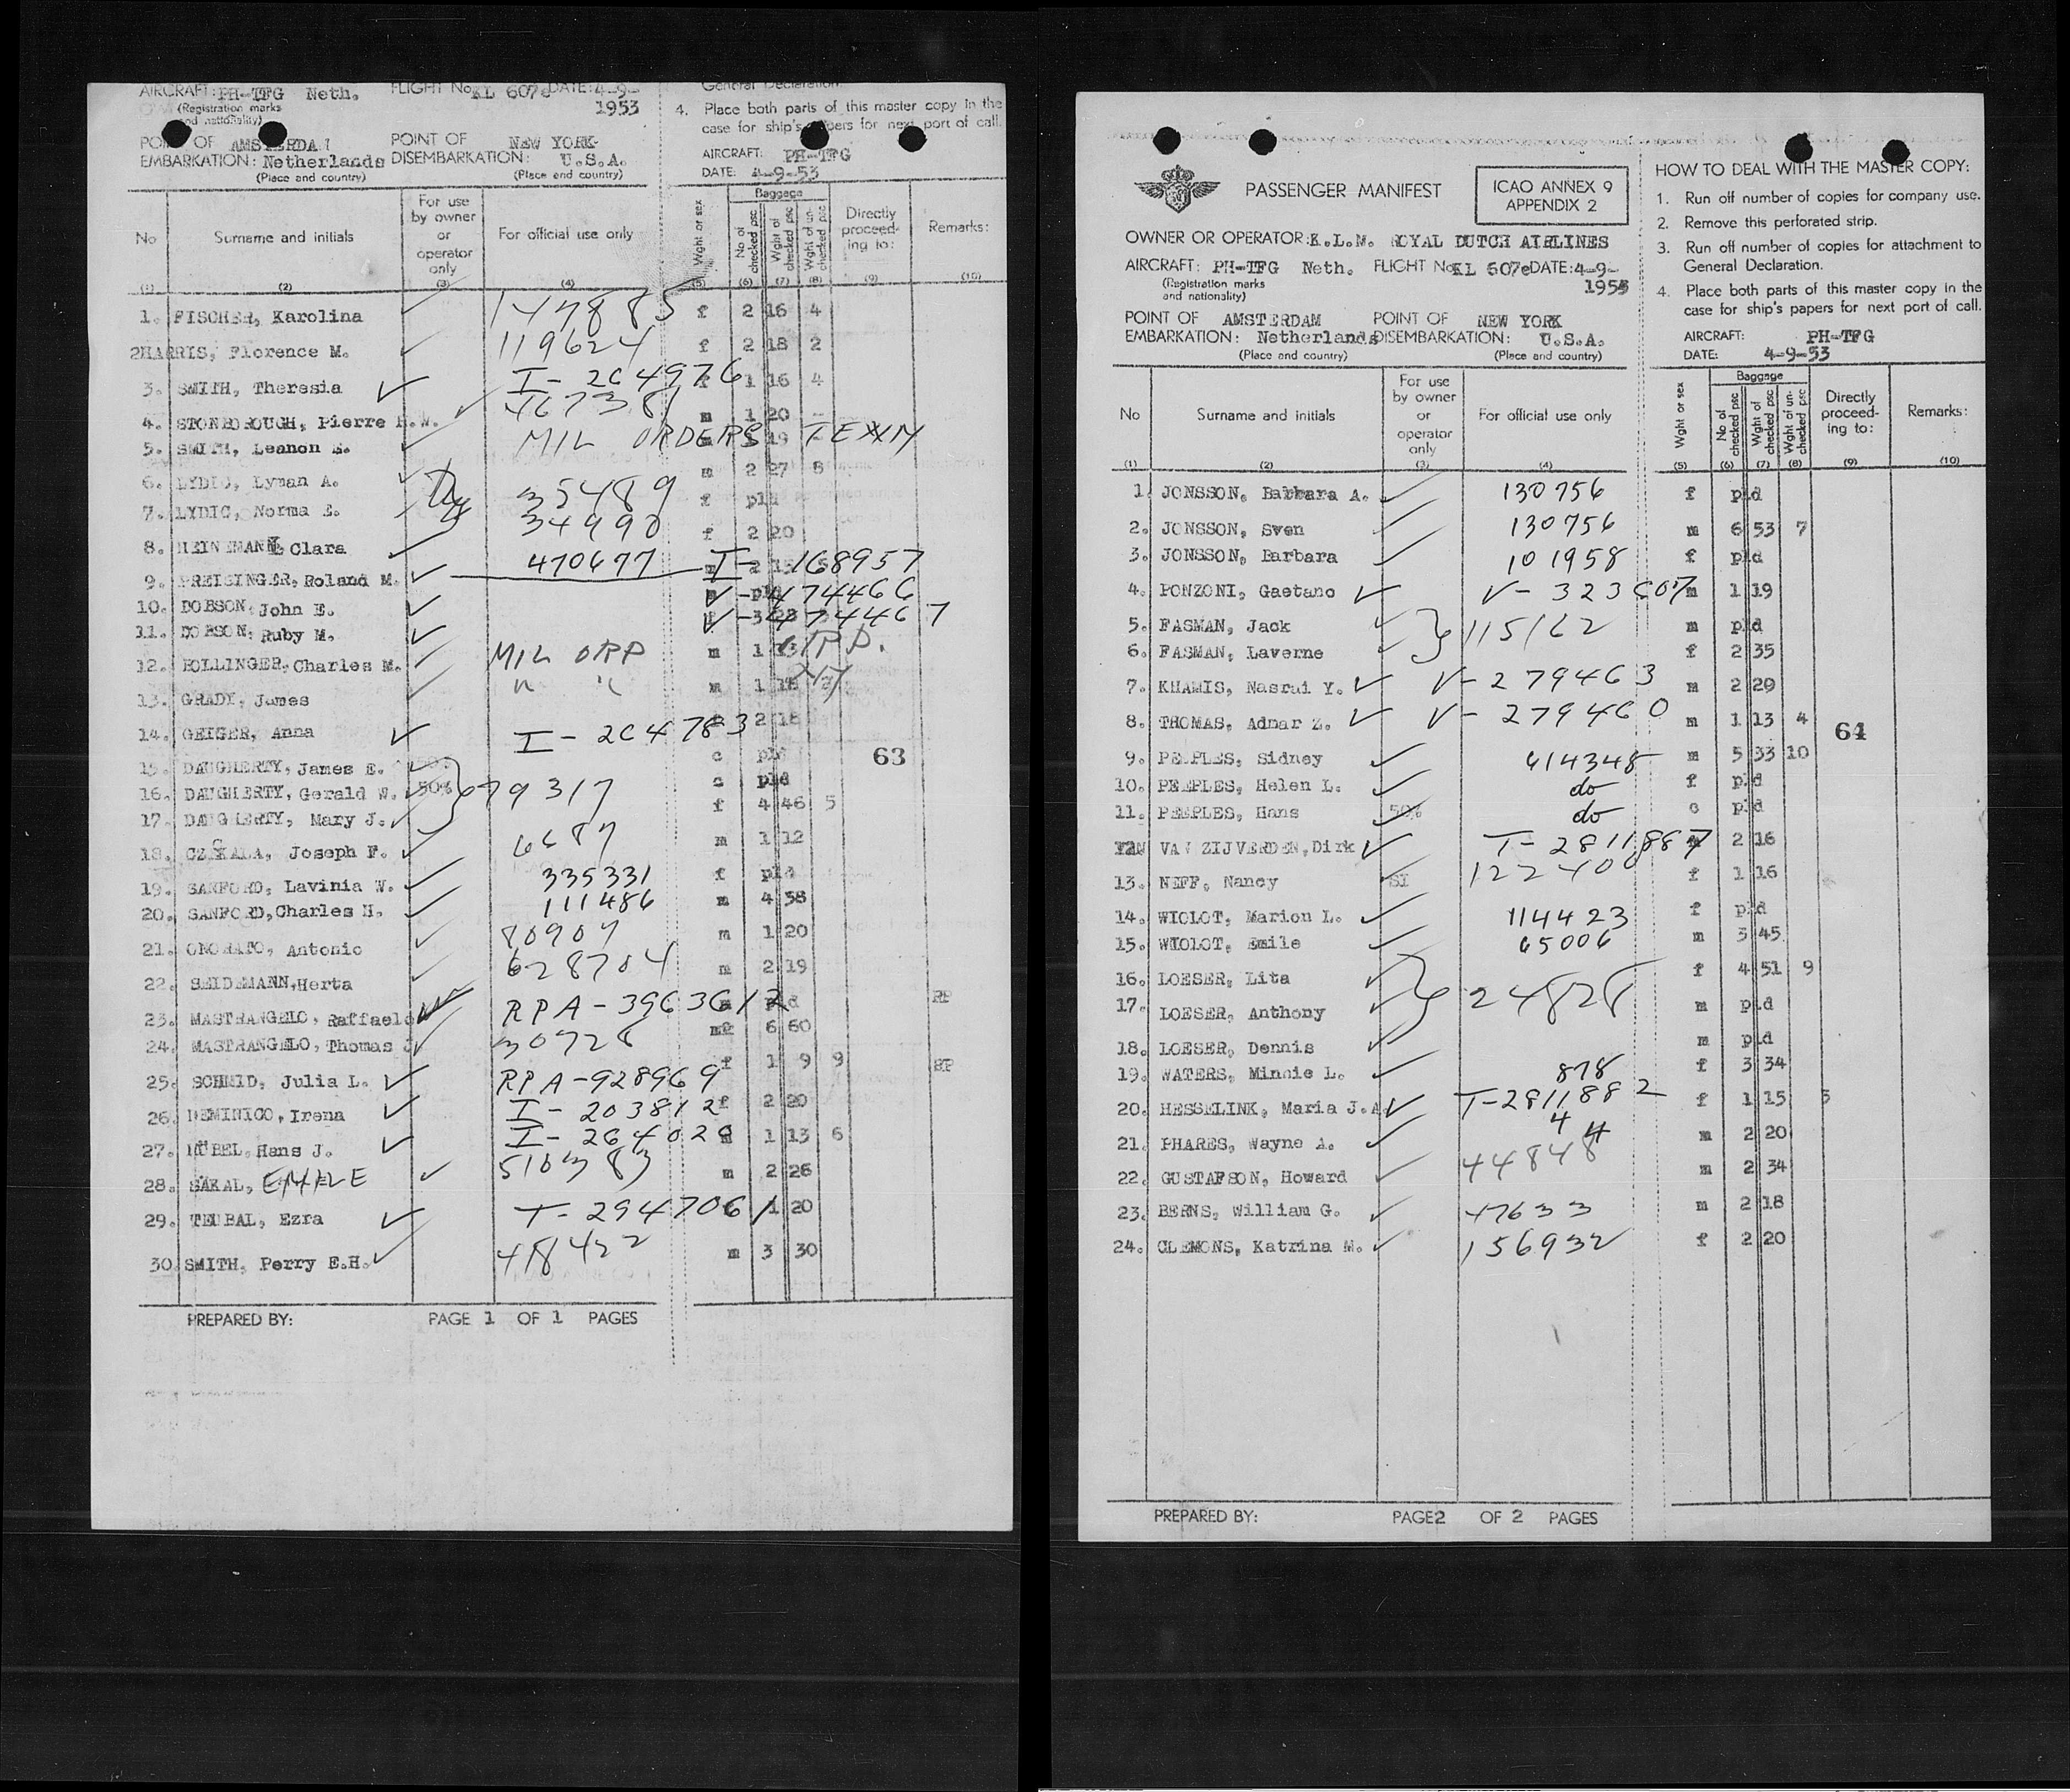 AIRCRAFT: PH-TFG Neth. FLIGHT No KL 607e DATE: 4-9-
(Registration marks 1953
and nationality)
POINT OF AMSTERDAM POINT OF NEW YORK
EMBARKATION: Netherlands DISEMBARKATION: U.S.A.
(Place and country) (Place and country)
General Declaration.
4. Place both parts of this master copy in the
case for ship's papers for next port of call.
AIRCRAFT: PH-TFG
DATE: 4-9-53
No Surname and initials For use by owner or operator only For official use only Wght or sex Baggage No of checked psc Wght of checked psc Wght of un-checked psc Directly proceed-ing to: Remarks:
(1) (2) (3) (4) (5) (6) (7) (8) (9) (10)
1. FISCHER, Karolina 147885 f 2 16 4
2 HARRIS, Florence M. 119624 f 2 18 2
3. SMITH, Theresia I-264976 1 16 4
4. STONBOROUGH, Pierre R.W. 467381 m 1 20 -
5. SMITH, Leanon E. MIL ORDERS 19
6. LYDIC, Lyman A. m 2 27 8
7. LYDIC, Norma E. 35489 f pld
8. HEINEMANN, Clara 34990 f 2 20
9. PREISINGER, Roland M. 470677 I-168957
10. DOBSON, John E. V-474466 pld
11. DOBSON, Ruby M. V-474467 3 28
12. HOLLINGER, Charles M. MIL ORP m 1
13. GRADY, James " " m 1 18
14. GEIGER, Anna I-264783 2 18
15. DAUGHERTY, James E. c pld
16. DAUGHERTY, Gerald W. 50% 679317 c pld
17. DAUGHERTY, Mary J. f 4 46 5
18. CZEKALA, Joseph F. 6687 m 1 12
19. SANFORD, Lavinia W. 335331 f pld
20. SANFORD, Charles H. 111486 m 4 58
21. ONORATO, Antonio 80907 m 1 20
22. SEIDEMANN, Herta 628704 m 2 19
23. MASTRANGELO, Raffaelo RPA-3963612 pld RP
24. MASTRANGELO, Thomas J. 30728 m 6 60
25. SCHMID, Julia L. RPA-928969 f 1 9 9 RP
26. DEMINICO, Irena I-203812 f 2 20
27. NÜBEL, Hans J. I-264028 1 13 6
28. SAKAL, EMILE 510383 m 2 26
29. TEUBAL, Ezra T-2947061 1 20
30. SMITH, Perry E.H. 418422 m 3 30
63
PREPARED BY: PAGE 1 OF 1 PAGES
PASSENGER MANIFEST
ICAO ANNEX 9
APPENDIX 2
HOW TO DEAL WITH THE MASTER COPY:
1. Run off number of copies for company use.
2. Remove this perforated strip.
3. Run off number of copies for attachment to
General Declaration.
4. Place both parts of this master copy in the
case for ship's papers for next port of call.
OWNER OR OPERATOR: K.L.M. ROYAL DUTCH AIRLINES
AIRCRAFT: PH-TFG Neth. FLIGHT No KL 607e DATE: 4-9-
(Registration marks 1953
and nationality)
POINT OF AMSTERDAM POINT OF NEW YORK
EMBARKATION: Netherlands DISEMBARKATION: U.S.A.
(Place and country) (Place and country)
AIRCRAFT: PH-TFG
DATE: 4-9-53
No Surname and initials For use by owner or operator only For official use only Wght or sex Baggage No of checked psc Wght of checked psc. Wght of un-checked psc Directly proceed-ing to: Remarks:
(1) (2) (3) (4) (5) (6) (7) (8) (9) (10)
1. JONSSON, Barbara A. 130756 f pld
2. JONSSON, Sven 130756 m 6 53 7
3. JONSSON, Barbara 101958 f pld
4. PONZONI, Gaetano V-323607 m 1 19
5. FASMAN, Jack 115162 m pld
6. FASMAN, Laverne f 2 35
7. KHAMIS, Nasrui Y. V-279463 m 2 20
8. THOMAS, Adnar Z. V-279460 m 1 13 4
64
9. PEEPLES, Sidney 614348 m 5 33 10
10. PEEPLES, Helen L. do f pld
11. PEEPLES, Hans 50% do c pld
12. VAN ZIJVERDEN, Dirk T-2811887 2 16
13. NEFF, Nancy SI 122400 f 1 16
14. WIOLOT, Marion L. 114423 f pld
15. WIOLOT, Emile 65006 m 3 45
16. LOESER, Lita f 4 51 9
17. LOESER, Anthony 24828 m pld
18. LOESER, Dennis m pld
19. WATERS, Minnie L. 878 f 3 34
20. HESSELINK, Maria J.A. T-2811882 f 1 15 5
21. PHARES, Wayne A. m 2 20
22. GUSTAFSON, Howard 44848 m 2 34
23. BERNS, William G. 47633 m 2 18
24. CLEMONS, Katrina M. 156932 f 2 20
PREPARED BY: PAGE 2 OF 2 PAGES